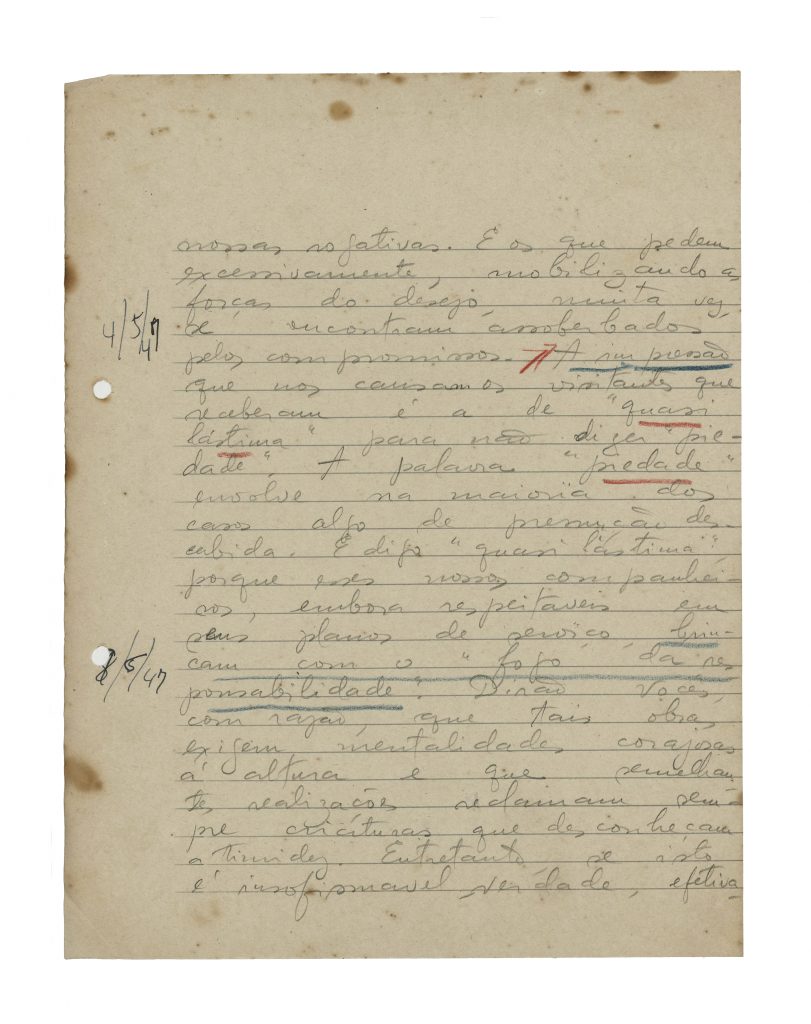 nossas rogativas. E os que pedem
excessivamente, mobilizando as
forças do desejo, muita vez,
4/5/47
se encontram assoberbados
pelos compromissos. A impressão
que nos causam os visitantes que
receberam é a de "quasi
lástima" para não dizer "pie-
dade". A palavra "piedade"
envolve na maioria dos
casos algo de presunção des-
cabida. E digo "quasi lástima",
porque esses nossos companhei-
ros, embora respeitaveis em
seus planos de serviço, brin-
8/5/47
cam com o "fogo da res
ponsabilidade". Dirão vocês,
com razão, que tais obras
exigem mentalidades corajosas
á altura e que semelhan
tes realizações reclamam sem-
pre criaturas que desconheçam
a timidez. Entretanto, se isto
é insofismavel verdade, efetiva